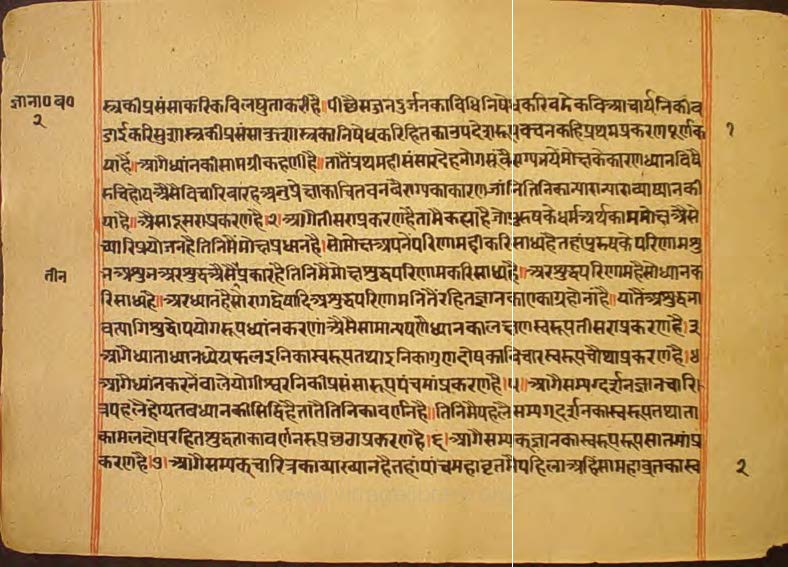 ज्ञाना० व०
२
स्त्रकीप्रसंसाकरिकविलघुताकरीहै॥पीछैसज्जनदुर्जनकाविधिनिषेधकरिवडेकविआचार्यनिकीव
डाईकरिसुशास्त्रकीप्रसंसाकुशास्त्रकानिषेधकरिहितकाउपदेशरूपवचनकहिप्रथमप्रकरणपूर्णक
१
याहै॥आगैध्यांनकीसामग्रीकहणीहै॥तातैंप्रथमहीसंसारदेहभोगसूंवैराग्यभयेंमोक्षकेकारणध्यानविषै
रुचिहोयअैसैविचारिबारहअनुप्रेक्षाकाचितवनवैराग्यकाकारणजांनितिनिकान्यारान्याराव्याख्यानकी
याहै॥अैसादूसराप्रकरणहै।२।आगैतीसराप्रकरणहैतामैंकह्याहैजोपुरुषकेधर्मअर्थकाममोक्षअैसे
च्यारिप्रयोजनहैतिनिमैंमोक्षप्रधानहै।सोमोक्षअपनेपरिणामहीकरिसाध्यहैतहांपुरुषकेपरिणामशु
तीन
भअशुभअरशुद्धअैसैप्रकारहैतिनिमैंमोक्षशुद्धपरिणामकरिसाध्यहै॥अरशुद्धपरिणामहैसोध्यानक
रिसाध्यहै॥अरध्यानहैसोरागद्वेषादिअशुद्धपरिणामनितैंरहितज्ञानकाएकाग्रहोनांहै॥यातैंअशुद्धभा
वत्यागिशुद्धोपयोगरूपध्यांनकरणांअैसैसामान्यपणैध्यानकालक्षणस्वरूपतीसराप्रकरणहै।३
आगैध्याताध्यानध्येयफलइनिकास्वरूपतथाइनिकागुणदोषकाविचारस्वरूपचौथाप्रकरणहै।४
आगैध्यांनकरनेंवालेयोगीश्वरनिकीप्रसंसारूपपंचमांप्रकरणहै।५।आगैसम्यग्दर्शनज्ञानचारि
त्रपहलैहोयतबध्यानकीसिद्धिहैतातैंतिनिकावर्णनहै॥तिनिमैंपहलैसम्यग्दर्शनकास्वरूपतथाता
कामलदोषरहितशुद्धताकावर्णनरूपछठाप्रकरणहै।६।आगैसम्यक्ज्ञानकास्वरूपरूपसातमांप्र
करणहै।७।आगैसम्यक्चारित्रकाव्याख्यानहैतहांपांचमहाव्रतमैंपहिलाअहिंसामहाव्रतकास्व
२